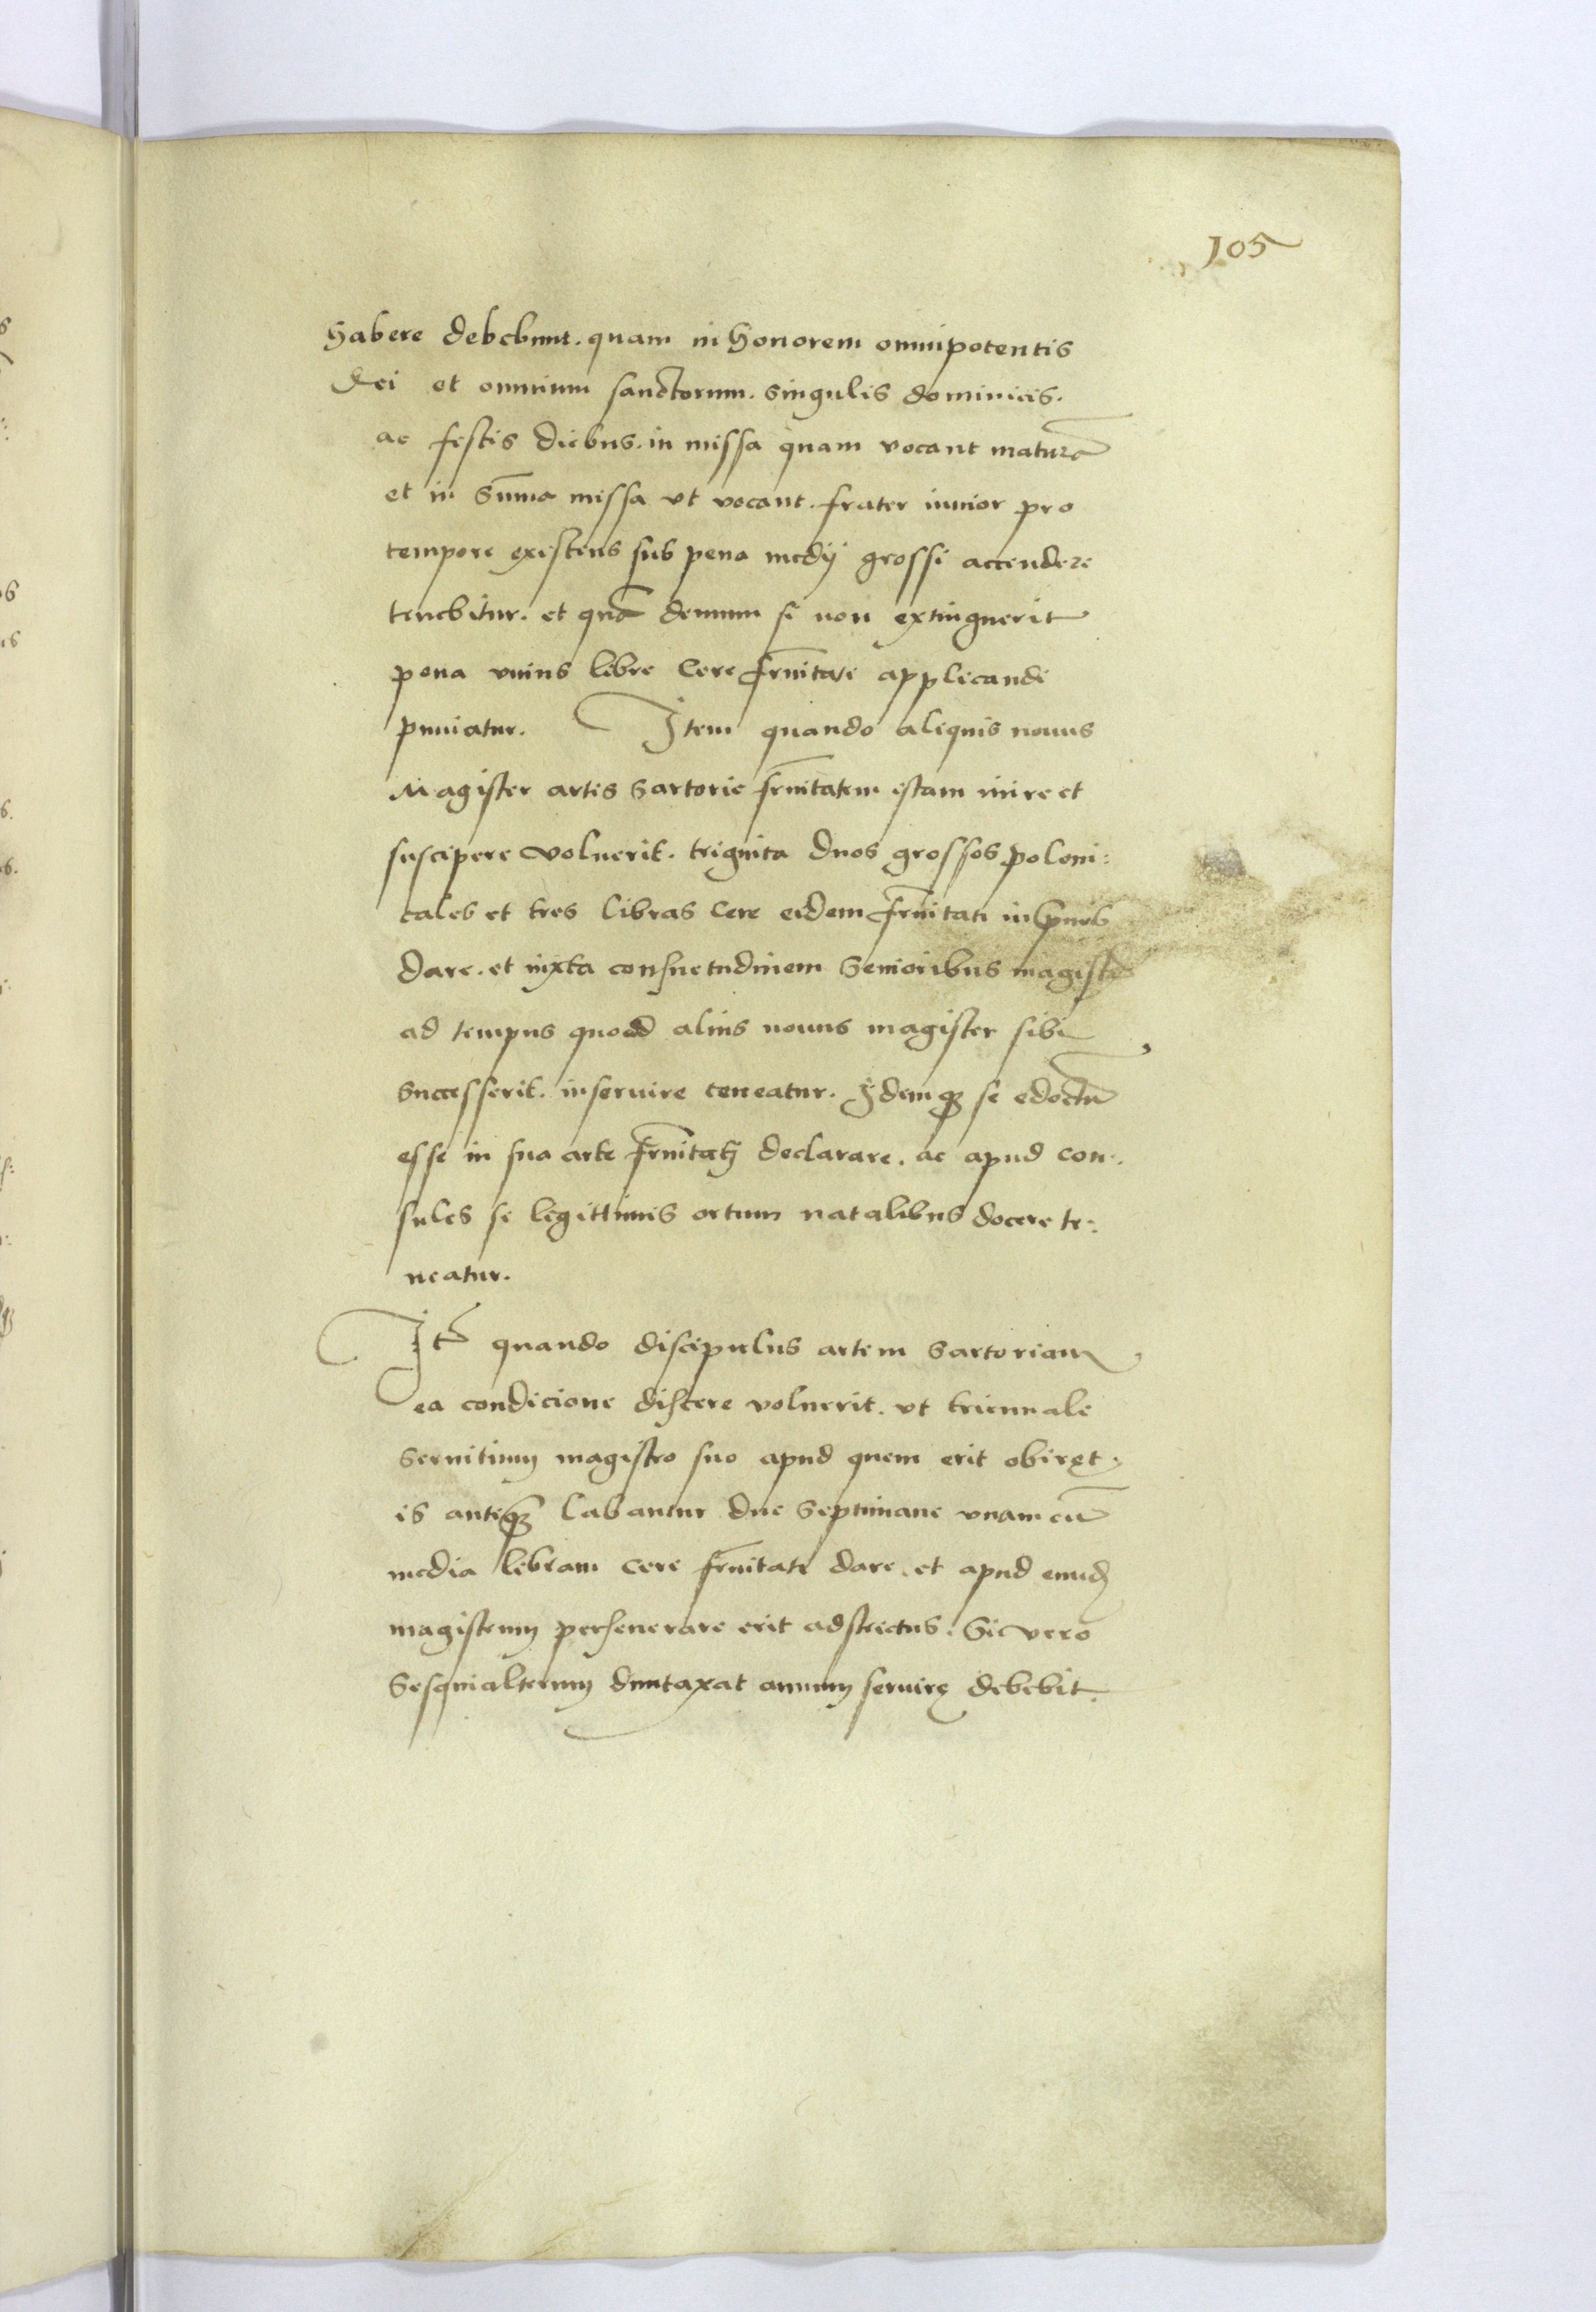 105
habere debebunt. quam in honorem omnipotentis
Dei et omnium sanctorum. singulis dominicis.
ac festis diebus. in missa quam vocant matura͞
et in Sum̅a missa vt vocant. frater iunior pro
tempore existens sub pena medij grossi accendere
tenebitur. et qua͞ demum si non extinguerit
pena vnius libre cere fr̅nitati applicandi
puniatur. Item quando aliquis nouus
Magister artis sartorie fr̅nitatem istam inire et
suscipere voluerit. triginta duos grossos poloni:
cales et tres libras cere eidem fr̅nitati
dare. et iuxta consuetudinem Senioribus magist͞
ad tempus quoad alius nouus magister sibi
successerit. inseruire teneatur. Idemqꝫ se edoctu͞
esse in sua arte fr̅nitatꝫ declarare. ac apud con:
sules se legittimis ortum natalibus docere te:
neatur.
It͞ quando discipulus artem Sartoriam
ea condicione discere voluerit. vt triennale
seruitium magistro suo apud quem erit obiret.
is anteqꝫ͞ labantur due Septimane vnam cu͞
media libram cere fr̅nitati dare. et apud eund̅
magistrum perseuerare erit adstrictus. Si vero
Sesquialterum duntaxat annum seruire debebit.